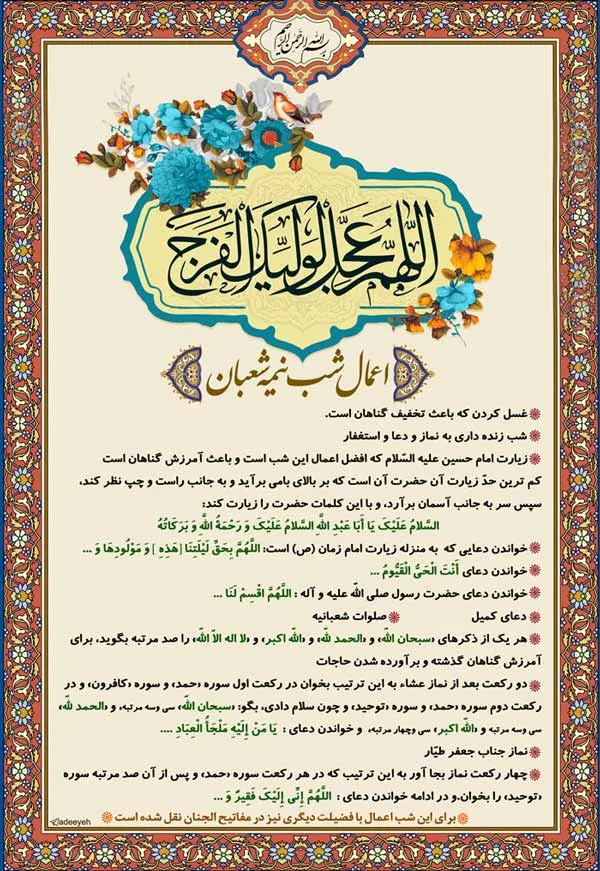 بسم الله الرحمن الرحیم
اللهم عجل لولیک الفرج
اعمال شب نیمه شعبان
غسل کردن که باعث تخفیف گناهان است.
شب زنده داری به نماز و دعا و استغفار
زیارت امام حسین علیه السّلام که افضل اعمال این شب است و باعث آمرزش گناهان است
کم ترین حدّ زیارت آن حضرت آن است که بر بالای بامی برآید و به جانب راست و چپ نظر کند،
سپس سر به جانب آسمان برآرد، و با این کلمات حضرت را زیارت کند:
السَّلامُ عَلَیْکَ یَا أَبَا عَبْدِ اللَّهِ السَّلامُ عَلَیْکَ وَ رَحْمَةُ اللَّهِ وَ بَرَکَاتُهُ
خواندن دعایی که به منزله زیارت امام زمان (ص) است: اللَّهُمَّ بِحَقِّ لَیْلَتِنَا [هَذِهِ] وَ مَوْلُودِهَا وَ ...
خواندن دعای أَنْتَ الْحَیُّ الْقَیُّومُ ...
خواندن دعای حضرت رسول صلی اللّه علیه و آله : اللَّهُمَّ اقْسِمْ لَنَا ...
دعای کمیل صلوات شعبانیه
هر یک از ذکرهای «سبحان اللّه» و «الحمد للّه» و «اللّه اکبر» و «لا اله الاّ اللّه» را صد مرتبه بگوید، برای
آمرزش گناهان گذشته و برآورده شدن حاجات
دو رکعت بعد از نماز عشاء به این ترتیب بخوان در رکعت اول سوره «حمد» و سوره «کافرون» و در
رکعت دوم سوره «حمد» و سوره «توحید» و چون سلام دادی، بگو: «سبحان اللّه» سی وسه مرتبه، و «الحمد للّه»
سی وسه مرتبه و «اللّه اکبر» سی وچهار مرتبه، و خواندن دعای : یَا مَنْ إِلَیْهِ مَلْجَأُ الْعِبَادِ ....
نماز جناب جعفر طیّار
چهار رکعت نماز بجا آور به این ترتیب که در هر رکعت سوره «حمد» و پس از آن صد مرتبه سوره
«توحید» را بخوان.و در ادامه خواندن دعای : اللَّهُمَّ إِنِّی إِلَیْکَ فَقِیرٌ وَ ...
برای این شب اعمال با فضیلت دیگری نیز در مفاتیح الجنان نقل شده است
adeeyeh